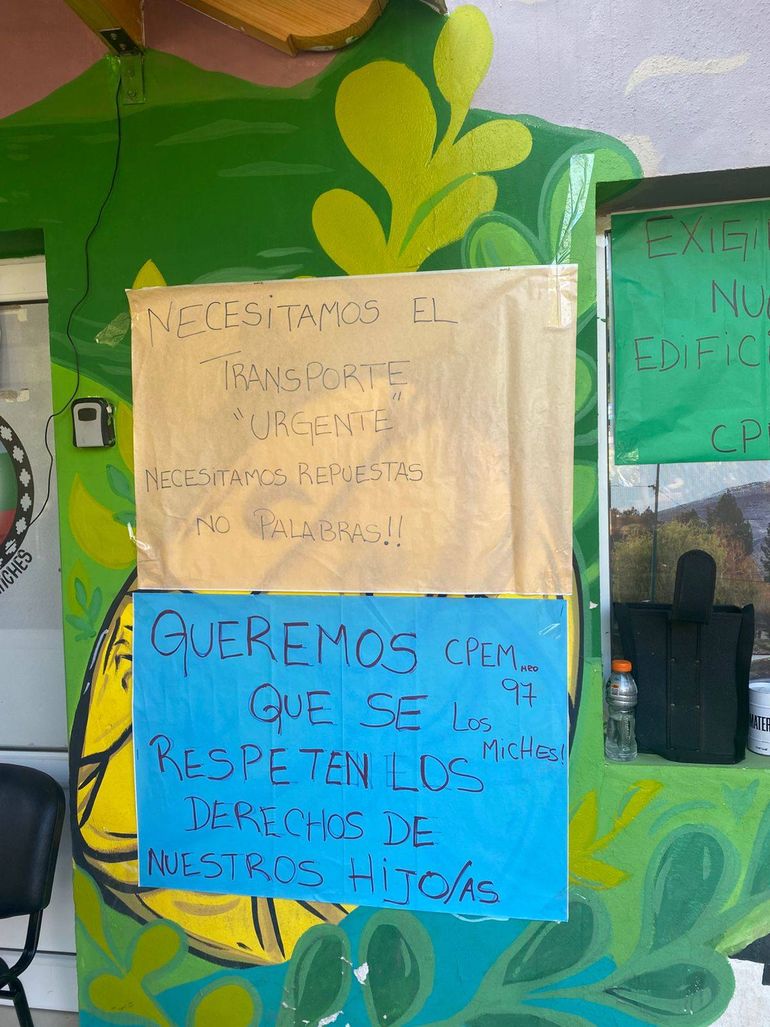 NECESITAMOS EL
TRANSPORTE
"URGENTE"
NECESITAMOS REPUESTAS
NO PALABRAS!!
QUEREMOS
QUE SE
RESPETEN LOS
DERECHOS DE
NUESTROS HIJO/AS
CPEM NRO
97
LOS
MICHES!
EXIGI
NU
EDIFICI
CP
MATER
MICHES